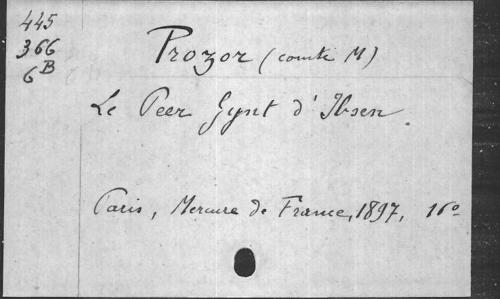 445
366
6B
Prozor (comte M)
Le Peer Gynt d'Ibsen
Paris, Mercure de France, 1897, 16º